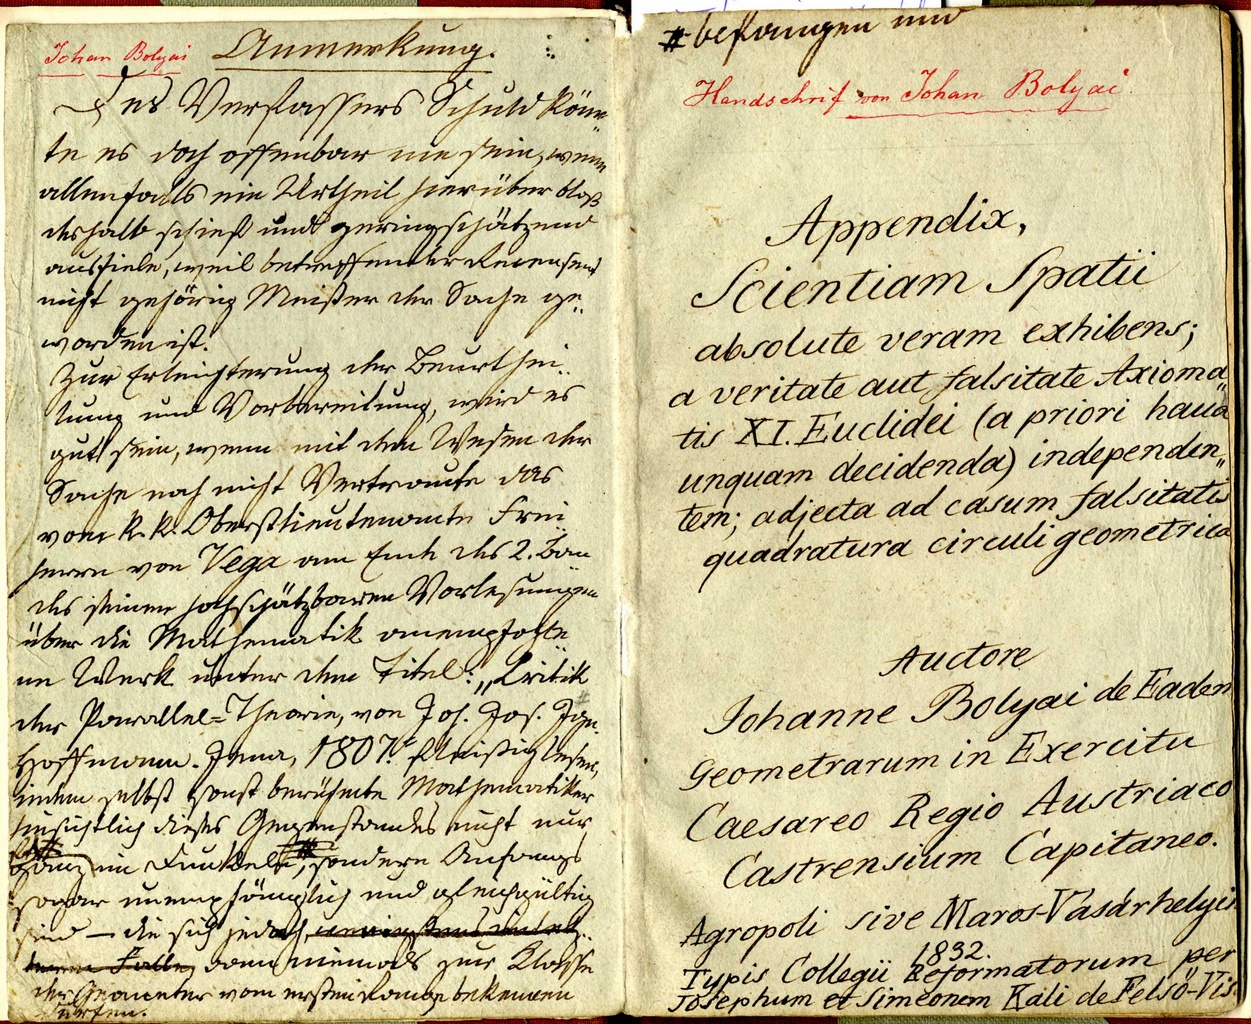 Johan Bolyai
Anmerkung.
Des Verfassers Schuld könn„
te es doch offenbar nie sein, wenn
allenfalls ein Urtheil hierüber bloß
deshalb schief und geringschätzend
ausfiele, weil betreffender Recensent
nicht gehörig Meister der Sache ge„
worden ist.
Zur Erleichterung der Beurthei„
lung und Vorbereitung, wird es
gut sein, wenn mit dem Wesen der
Sache noch nicht Vertraute das
vom k. k. Oberstlieutenante Frei„
herrn von Vega am Ende des 2. Ban„
des seiner hochschätzbaren Vorlesungen
über die Mathematik anempfohle„
ne Werk unter dem Titel: „Kritik
der Parallel=Theorie, von Joh. Jos. Ign.
Hoffmann. Jena, 1807." fleißig lesen,
indem selbst sonst berühmte Mathematiker
hinsichtlich dieses Gegenstandes nicht nur
ganz im Dunkeln, sondern Anfangs
sogar unempfänglich und gleichgültig
sind — die sich jedoch
Falle dann niemals zur Klasse
der Geometer vom ersten Range bekennen
dürfen.
# befangen und
Handschrif von Johan Bolyai
Appendix,
Scientiam Spatii
absolute veram exhibens;
a veritate aut falsitate Axioma„
tis XI. Euclidei (a priori haud
unquam decidenda) independen„
tem; adjecta ad casum falsitatis
quadratura circuli geometrica
Auctore
Johanne Bolyai de Eadem
Geometrarum in Exercitu
Caesareo Regio Austriaco
Castrensium Capitaneo.
Agropoli sive Maros-Vásárhelyis.
1832.
Typis Collegii Reformatorum per
Josephum et Simeonem Kali de Felső-Vis.